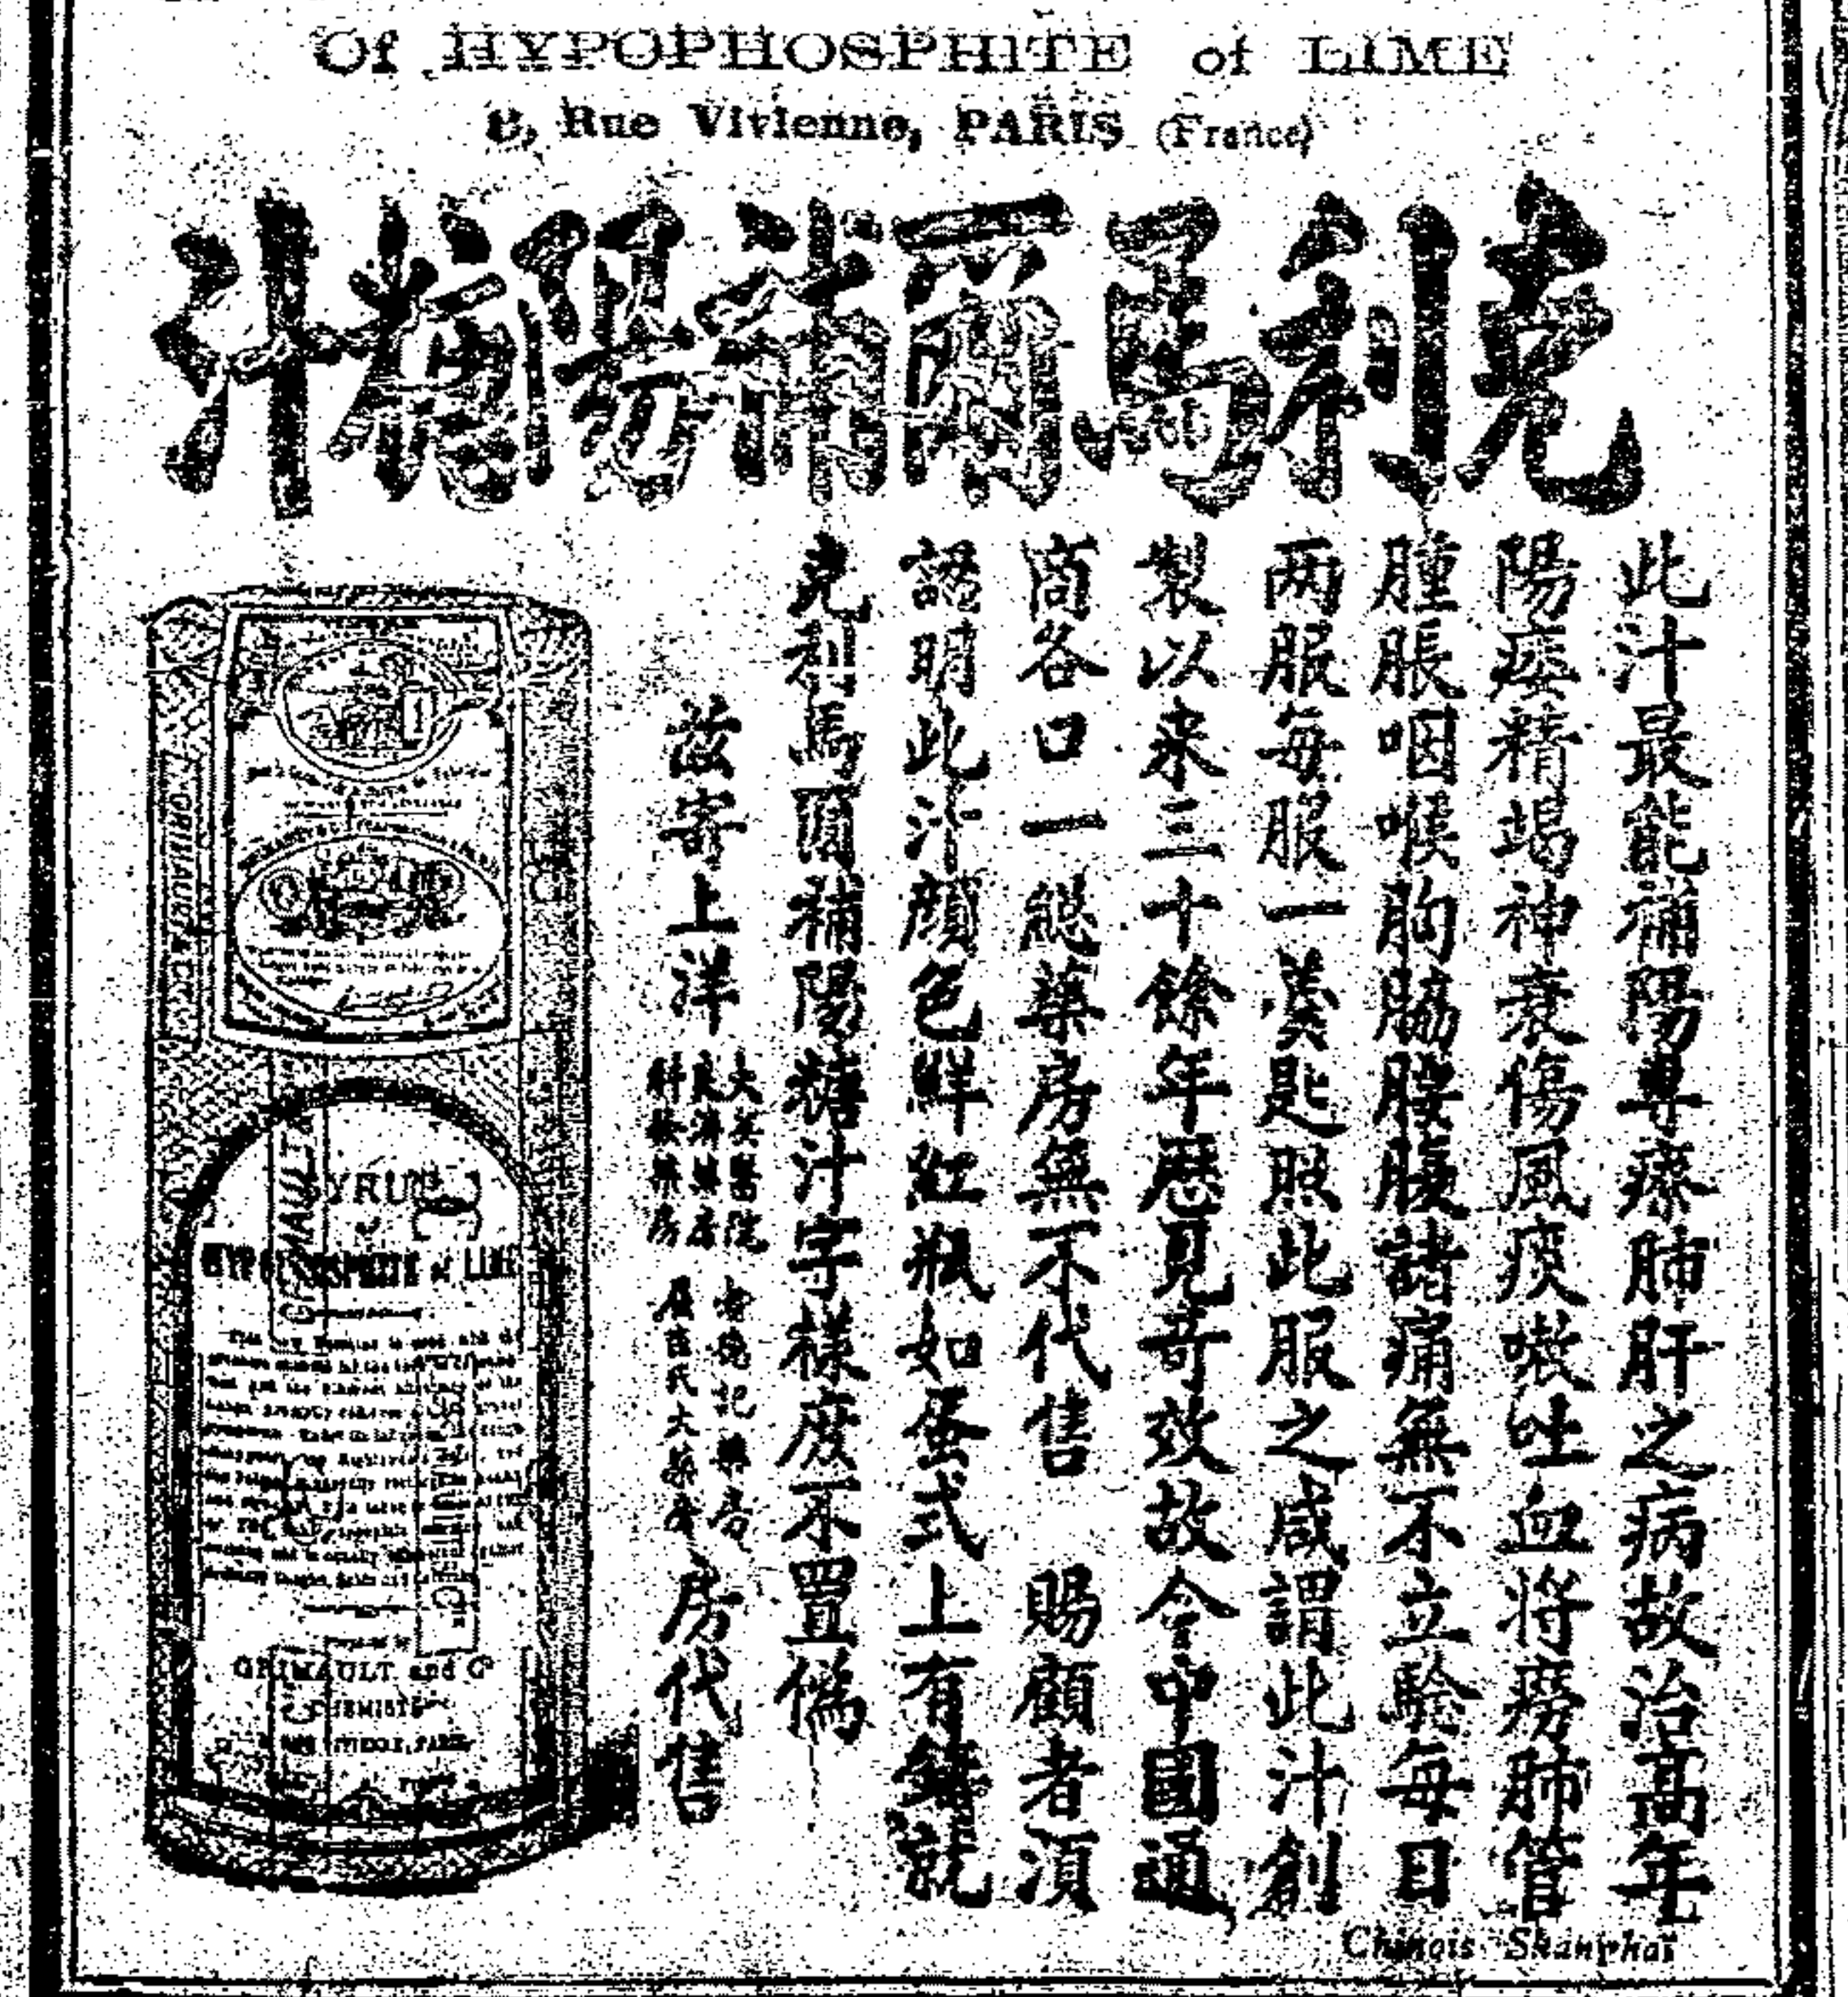 Of HYPOPHOSPHITE of LIME
8, Rue Vivienne, PARIS (France)
克利馬爾補陽糖汁
此汁最能補陽專療肺肝之病故治高年
陽痿精竭神衰傷風痰嗽吐血將癆肺管
腫脹咽喉胸脇腰腹諸痛無不立驗每日
两服每服一羹匙照此服之咸謂此汁創
製以来三十餘年歷見奇效故令中國通
商各口一總藥房無不代售 賜顧者湏
認明此汁顔色鮮紅瓶如蛋式上有鑄就
克利馬爾補陽糖汁字樣庶不置僞
茲寄上洋
大英醫院
藥房
科發藥房
屈臣氏大藥房
房代售
GRIMAULT & C
SYRUP
of
HYPOPHOSPHITE of LIME
GRIMAULT and Cº
CHEMISTS
PARIS
Chinois Shanghai